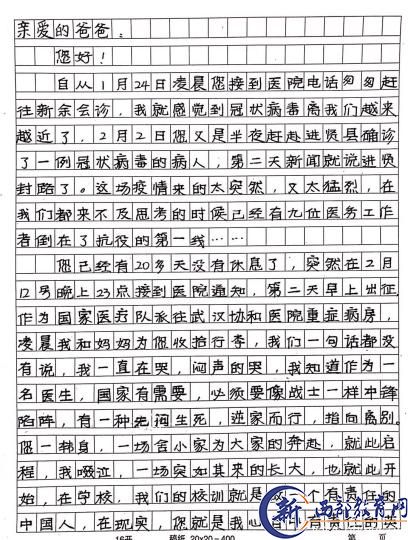 亲爱的爸爸：
您好！
自从1月24日凌晨您接到医院电话匆匆赶
往新余会诊，我就感觉到冠状病毒离我们越来
越近了，2月2日您又是半夜赶赴进贤县确诊
了一例冠状病毒的病人，第二天新闻就说进贤
封路了。这场疫情来的太突然，又太猛烈，在
我们都来不及思考的时候已经有九位医务工作
者倒在了抗役的第一线……
您已经有20多天没有休息了，突然在2月
12号晚上23点接到医院通知，第二天早上出征
作为国家医疗队派往武汉协和医院重症病房，
凌晨我和妈妈为您收拾行李，我们一句话都没
有说，我一直在哭，闷声的哭，我知道作为一
名医生，国家有需要，必须要像战士一样冲锋
陷阵，有一种生死，逆家而行，指向离别。
您一转身，一场舍小家为大家的奔赴，就此启
程，我啜泣，一场突如其来的长大，也就此开
始，在学校，我们的校训就是做一个有责任的
中国人，在现实，您就是我心目有责任的英
16开 稿纸 20×20＝400 第 页
新西部教育网